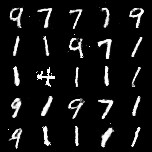 9 7 7 7 9
1 1 9 7 1
1 1 1 1
9 1 9 7 1
9 1 1 1 1